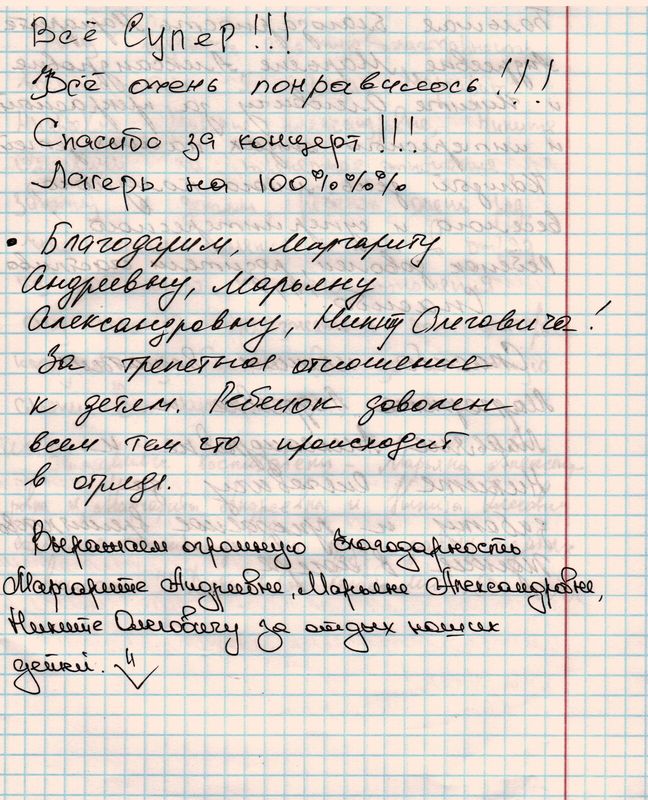 Всё Супер!!!
Всё очень понравилось!!!
Спасибо за концерт!!!
Лагерь на 100%%%
• Благодарим, Маргариту
Андреевну, Марьяну
Александровну, Никиту Олеговича!
За трепетное отношение
к детям. Ребенок доволен
всем тем что происходит
в отряде.
Выражаем огромную благодарность
Маргарите Андреевне, Марьяне Александровне,
Никите Олеговичу за отдых наших
детей.